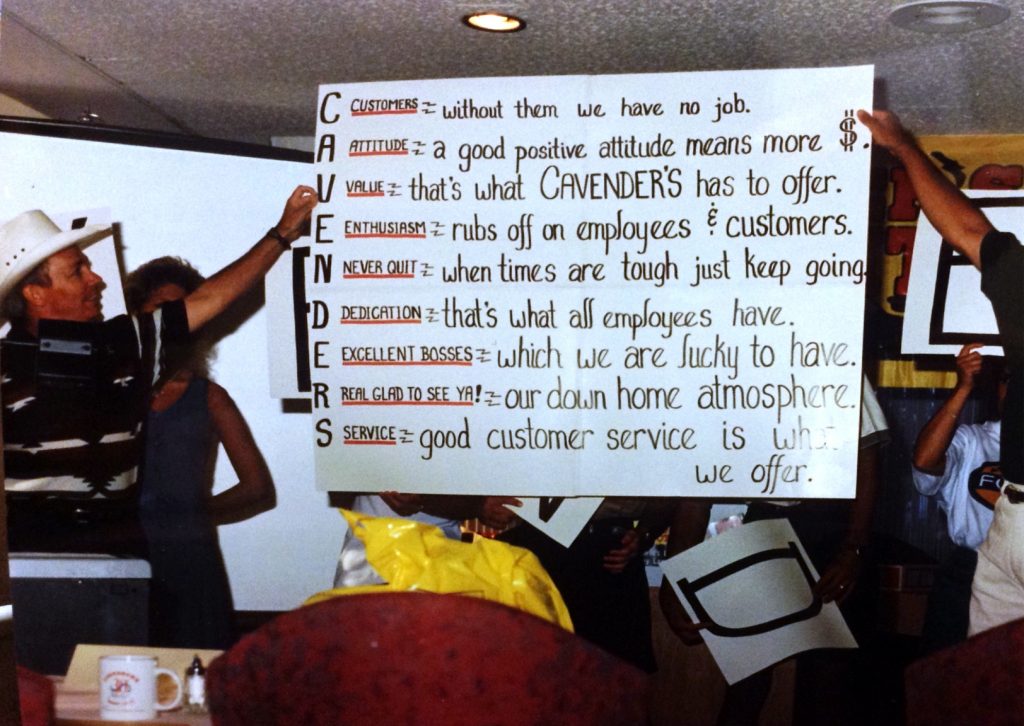 C CUSTOMERS = without them we have no job.
A ATTITUDE = a good positive attitude means more $.
V VALUE = that's what CAVENDER'S has to offer.
E ENTHUSIASM = rubs off on employees & customers.
N NEVER QUIT = when times are tough just keep going
D DEDICATION = that's what all employees have.
E EXCELLENT BOSSES = which we are lucky to have.
R REAL GLAD TO SEE YA! = our down home atmosphere.
S SERVICE = good customer service is what
we offer.
D